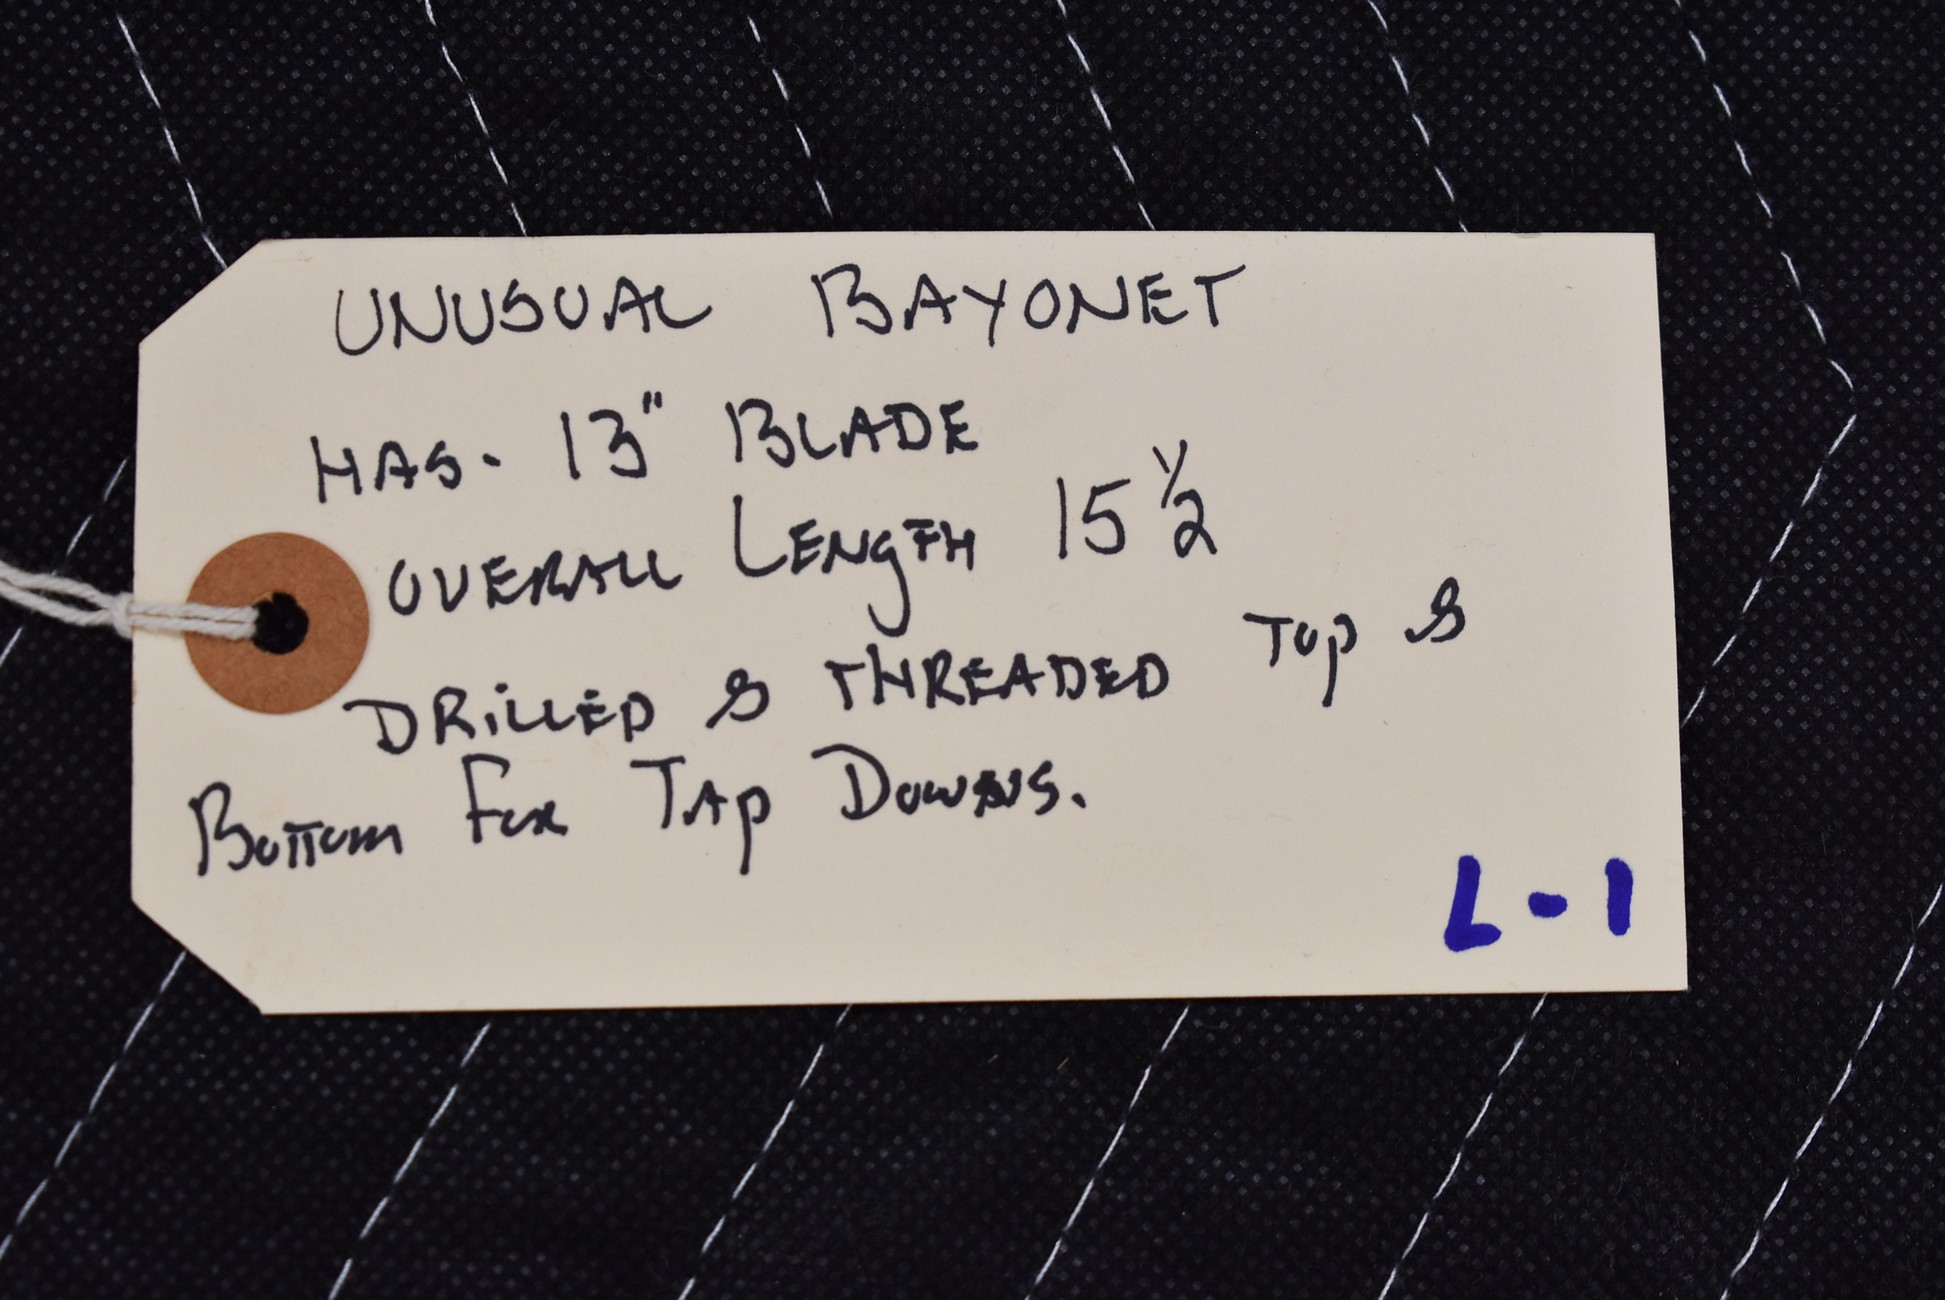 UNUSUAL BAYONET
HAS. 13" BLADE
OVERALL LENGTH 15 1/2
DRILLED & THREADED TOP &
BOTTOM FOR TAP DOWNS.
L-1